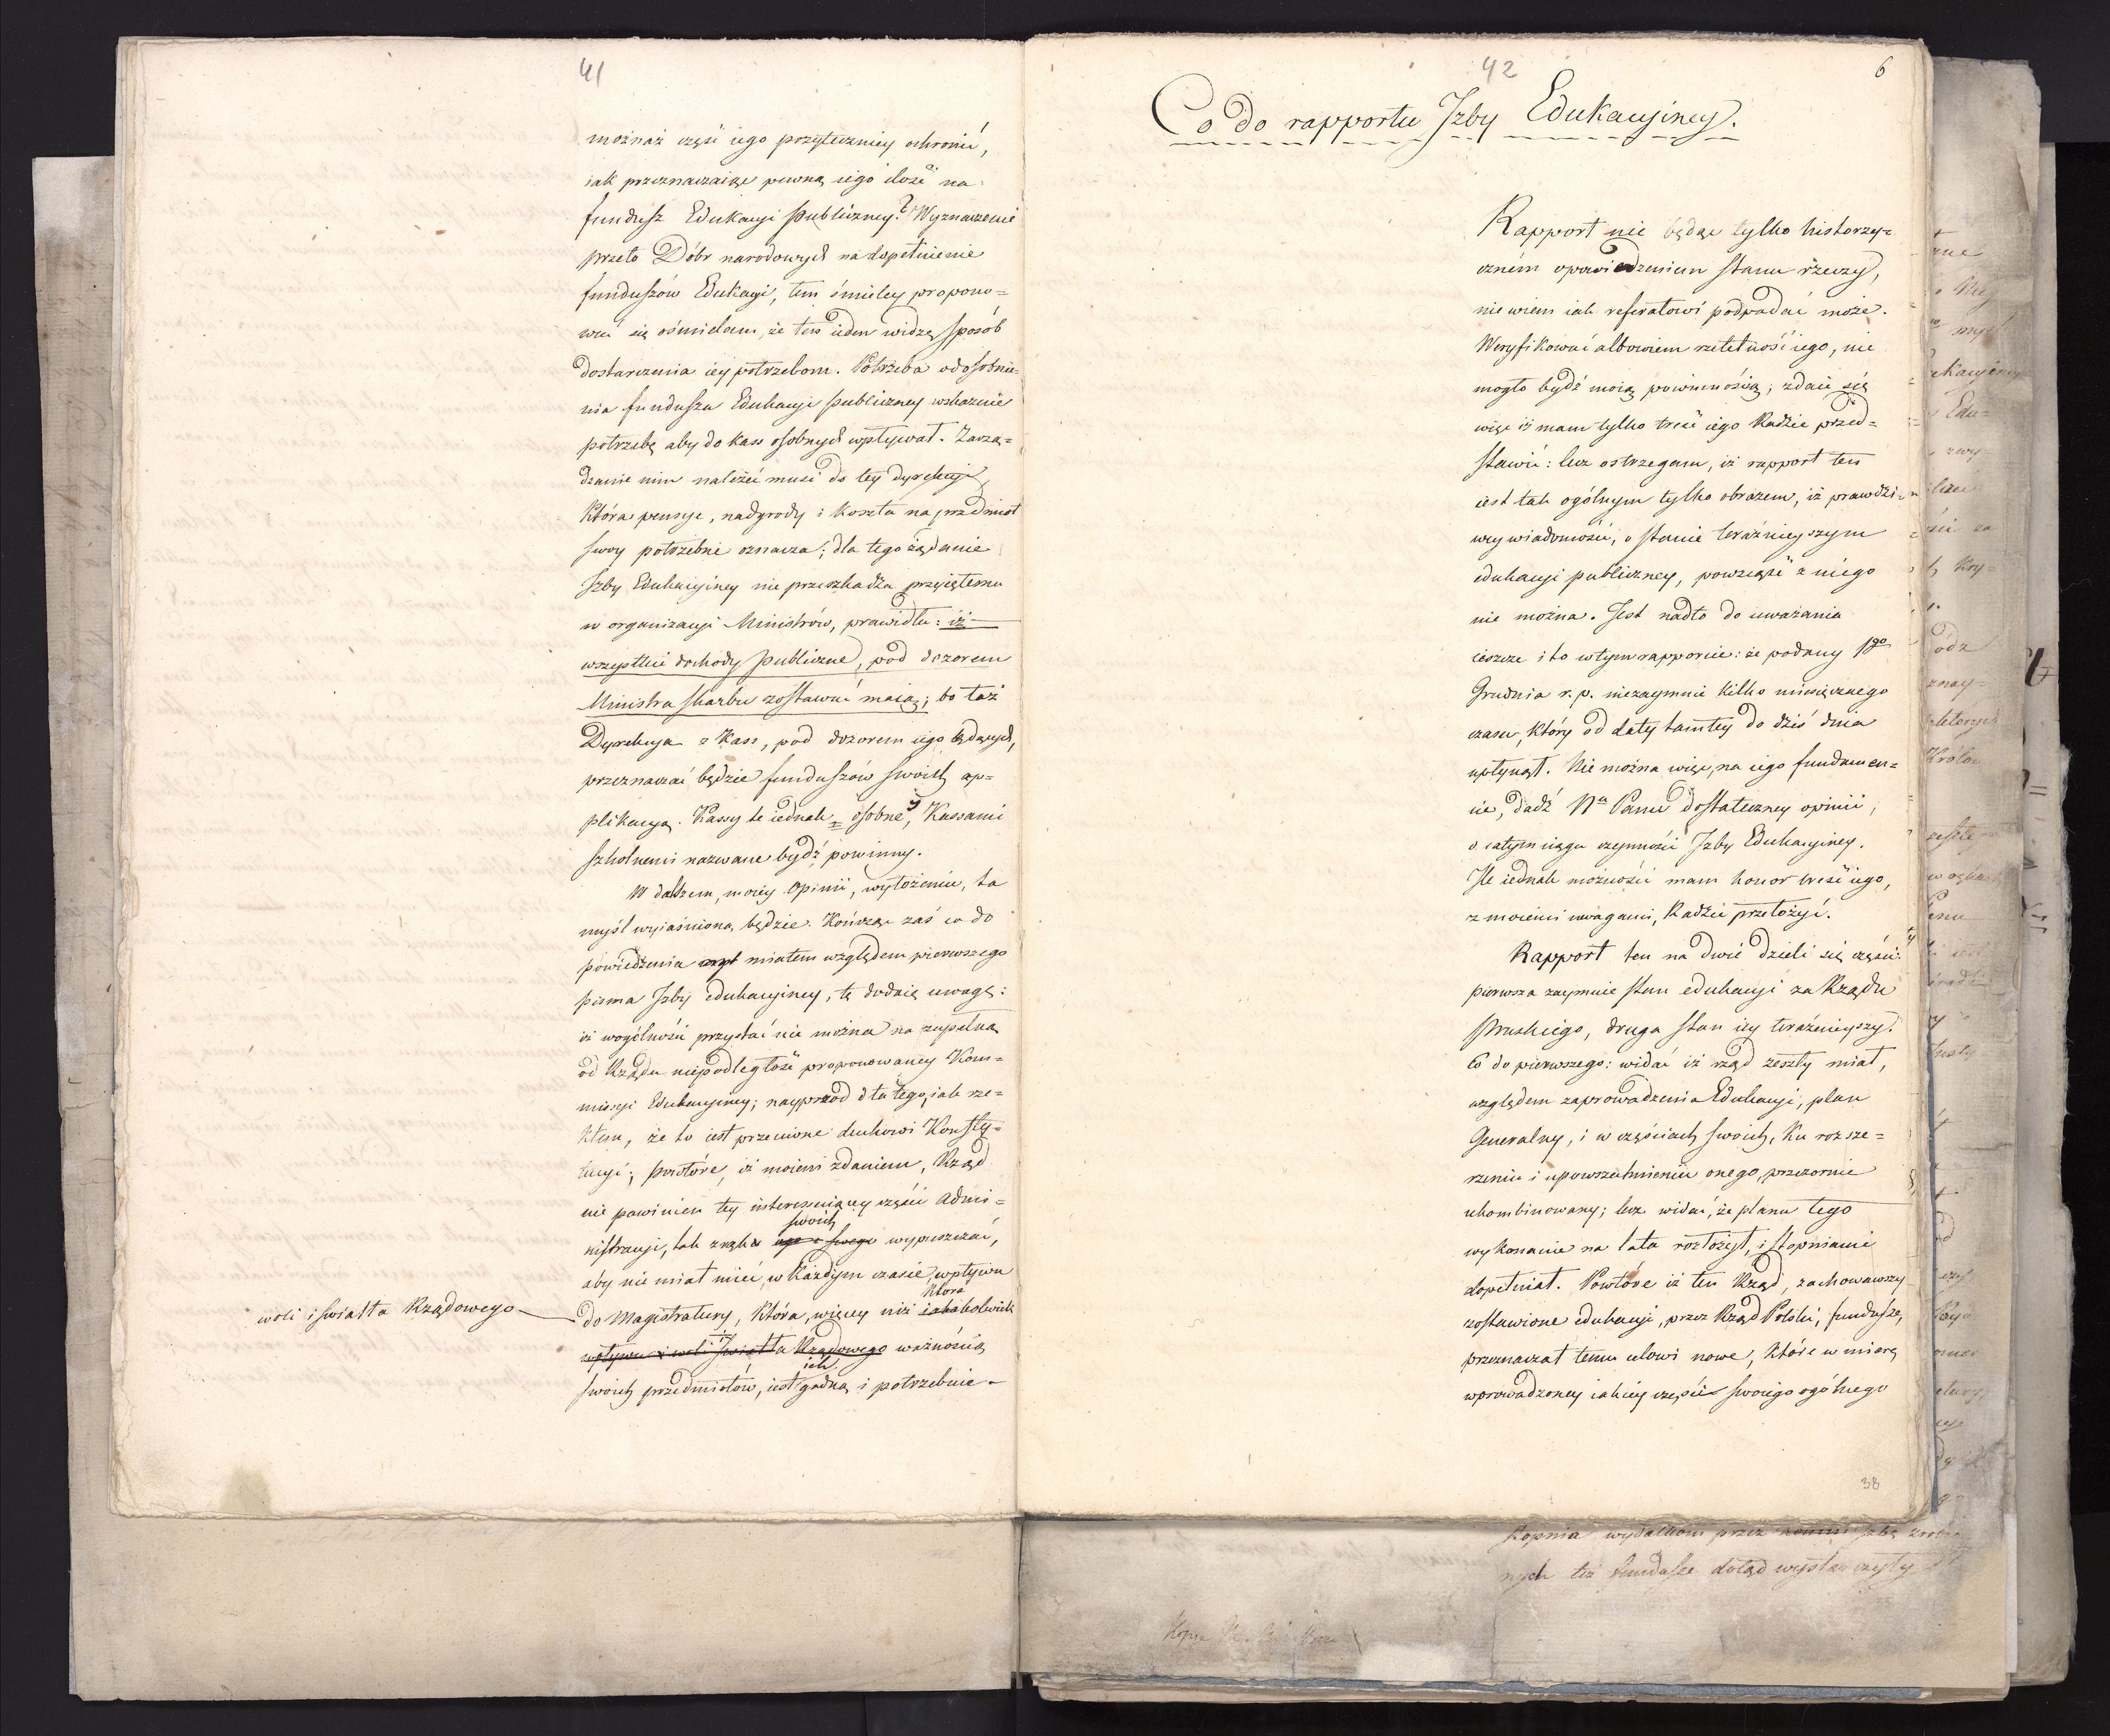 41
możnaż część iego pożyteczniey ochronić,
iak przeznaczaiąc pewną iego ilość na
fundusz Edukacyi publiczney? Wyznaczenie
przeto Dóbr narodowych na dopełnienie
funduszów Edukacyi, tem śmieley propono=
wać się ośmielam, że ten ieden widzę sposób
dostarczenia iey potrzebom. Potrzeba odosobnie=
nia funduszu Edukacyi publiczney wskazuie
potrzebę aby do kass osobnych wpływał. Zarzą=
dzanie nim należeć musi do tey dyrekcyi,
która pensye, nadgrody i koszta na przedmiot
swoy potrzebne oznacza; dla tego żądanie
Izby Edukacyiney nie przeszkadza przyiętemu
w organizacyi Ministrów, prawidłu: iż
wszystkie dochody publiczne, pod dozorem
Ministra skarbu zostawać maią; bo taż
Dyrekcya z Kass, pod dozorem iego będących,
przeznaczać będzie funduszów swoich ap=
plikacyą. Kassy te iednak = osobne, Kassami
szkolnemi nazwane bydź powinny.
W dalszem, moiey opinii, wyłożeniu, ta
myśl wyiaśnioną będzie. Kończąc zaś co do
powiedzenia miałem względem pierwszego
pisma Izby edukacyiney, tę dodaię uwagę:
iż w ogólności przystać nie można na zupełną
od Rządu niepodległość proponowaney Kom=
missyi Edukacyiney; nayprzód dla tego, iak rze=
kłem, że to iest przeciwne duchowi Konsty=
tucyi; powtóre, iż moiem zdaniem, Rząd
nie powinien tey interessuiącey części Admi=
swoich
nistracyi, tak z rąk wypuszczać,
aby nie miał mieć w każdym czasie wpływu
która
woli i światła Rządowego
do Magistratury, która, więcey niż iakakolwiek
wpływu i woli światła Rządowego ważnością
ich
swoich przedmiotów, iest godną i potrzebuie
42
6
Co do rapportu Izby Edukacyiney.
Rapport nie będąc tylko historzy=
czném opowiedzeniem stanu rzeczy,
nie wiem iak referatowi podpadać może.
Weryfikować albowiem rzetelność iego, nie
mogło bydź moią powinnością; zdaie się
więc iż mam tylko treść iego Radzie przed=
stawić: lecz ostrzegam, iż rapport ten
iest tak ogólnym tylko obrazem, iż prawdzi=
wey wiadomości, o stanie teraźnieyszym
edukacyi publiczney, powziąść z niego
nie można. Jest nadto do uważania
ieszcze i to w tym rapporcie: że podany 18go
Grudnia r. p. niezaymuie kilko miesięcznego
czasu, który od daty tamtey do dziś dnia
upłynął. Nie można więc, na iego fundamen=
cie, dadź Nu Panu dostateczney opinii,
o całym ciągu czynności Izby Edukacyiney.
Ile iednak możności mam honor treść iego,
z moiemi uwagami, Radzie przełożyć.
Rapport ten na dwie dzieli się części:
pierwsza zaymuie stan edukacyi za Rządu
pruskiego, druga stan iey teraźnieyszy.
Co do pierwszego: widać iż rząd zeszły miał,
względem zaprowadzenia Edukacyi, plan
Generalny, i w częściach swoich, ku rozsze=
rzeniu i upowszechnieniu onego, przezornie
ukombinowany; lecz widać, że planu tego
wykonanie na lata rozłożył, i stopniami
dopełniał. Powtóre iż ten Rząd, zachowawszy
zostawione edukacyi, przez Rząd Polski, fundusze,
przeznaczał temu celowi nowe, które w miarę
wprowadzoney iakiey części swoiego ogólnego
38
stopnia wydatkom przez
nych też fundusze dotąd wystarczyły